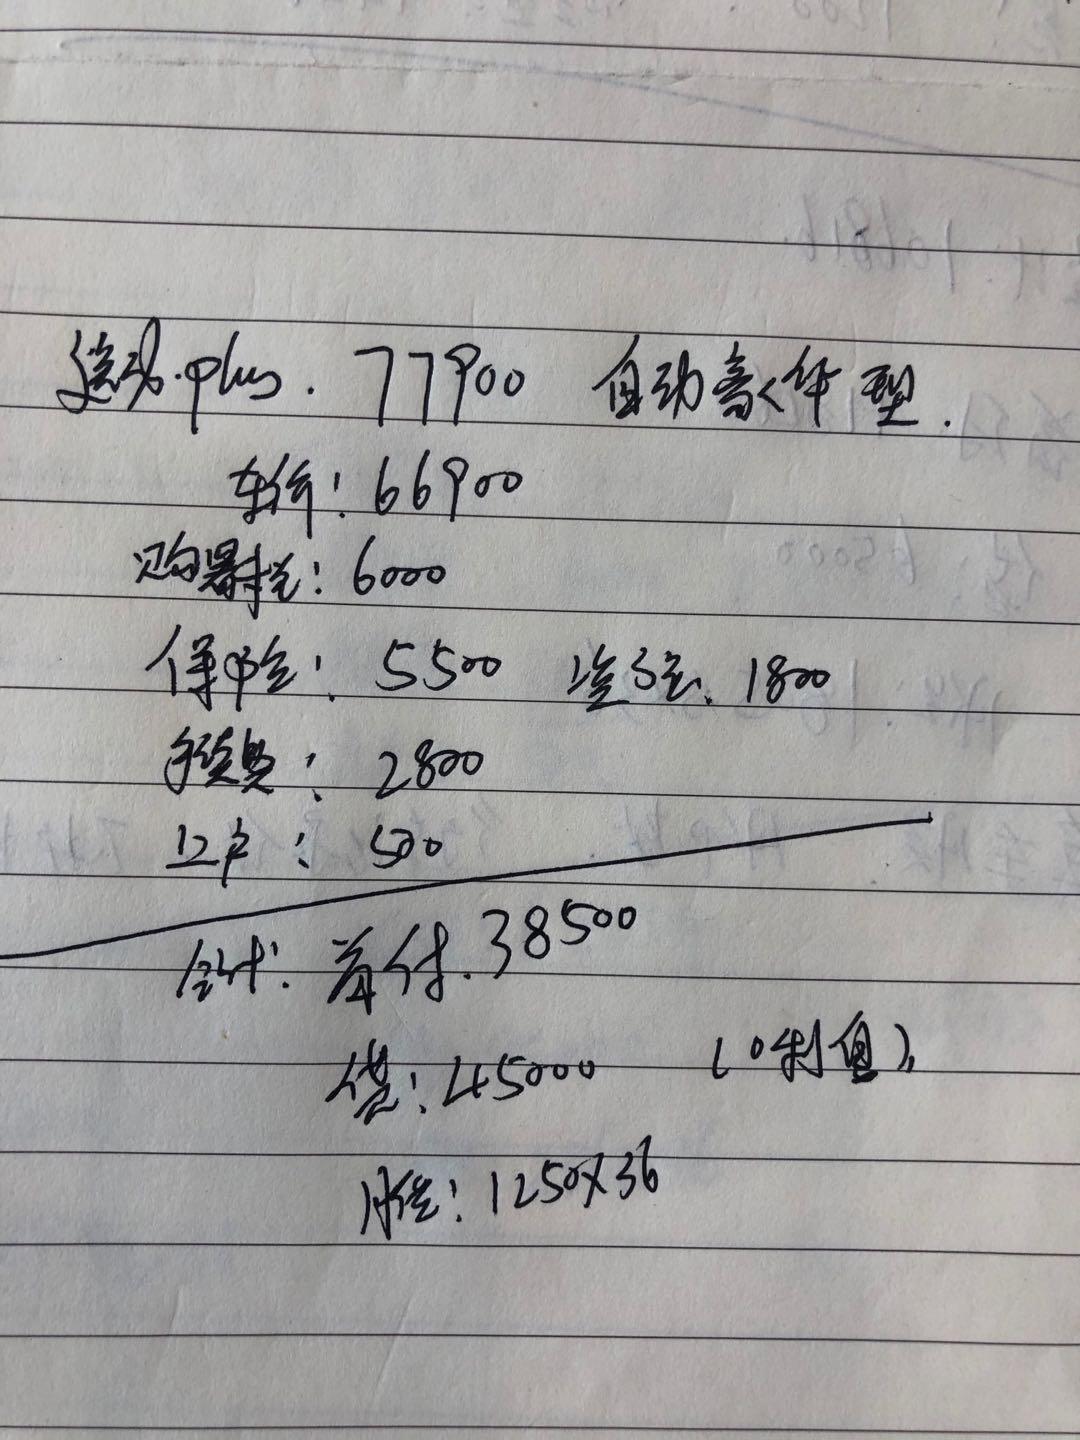 逸动.plus. 77900 自动豪华型.
车价: 66900
购置税: 6000
保险: 5500 1800
手续费: 2800
上户: 500
合计. 首付. 38500
贷: 45000 (0利息)
月供: 1250X36